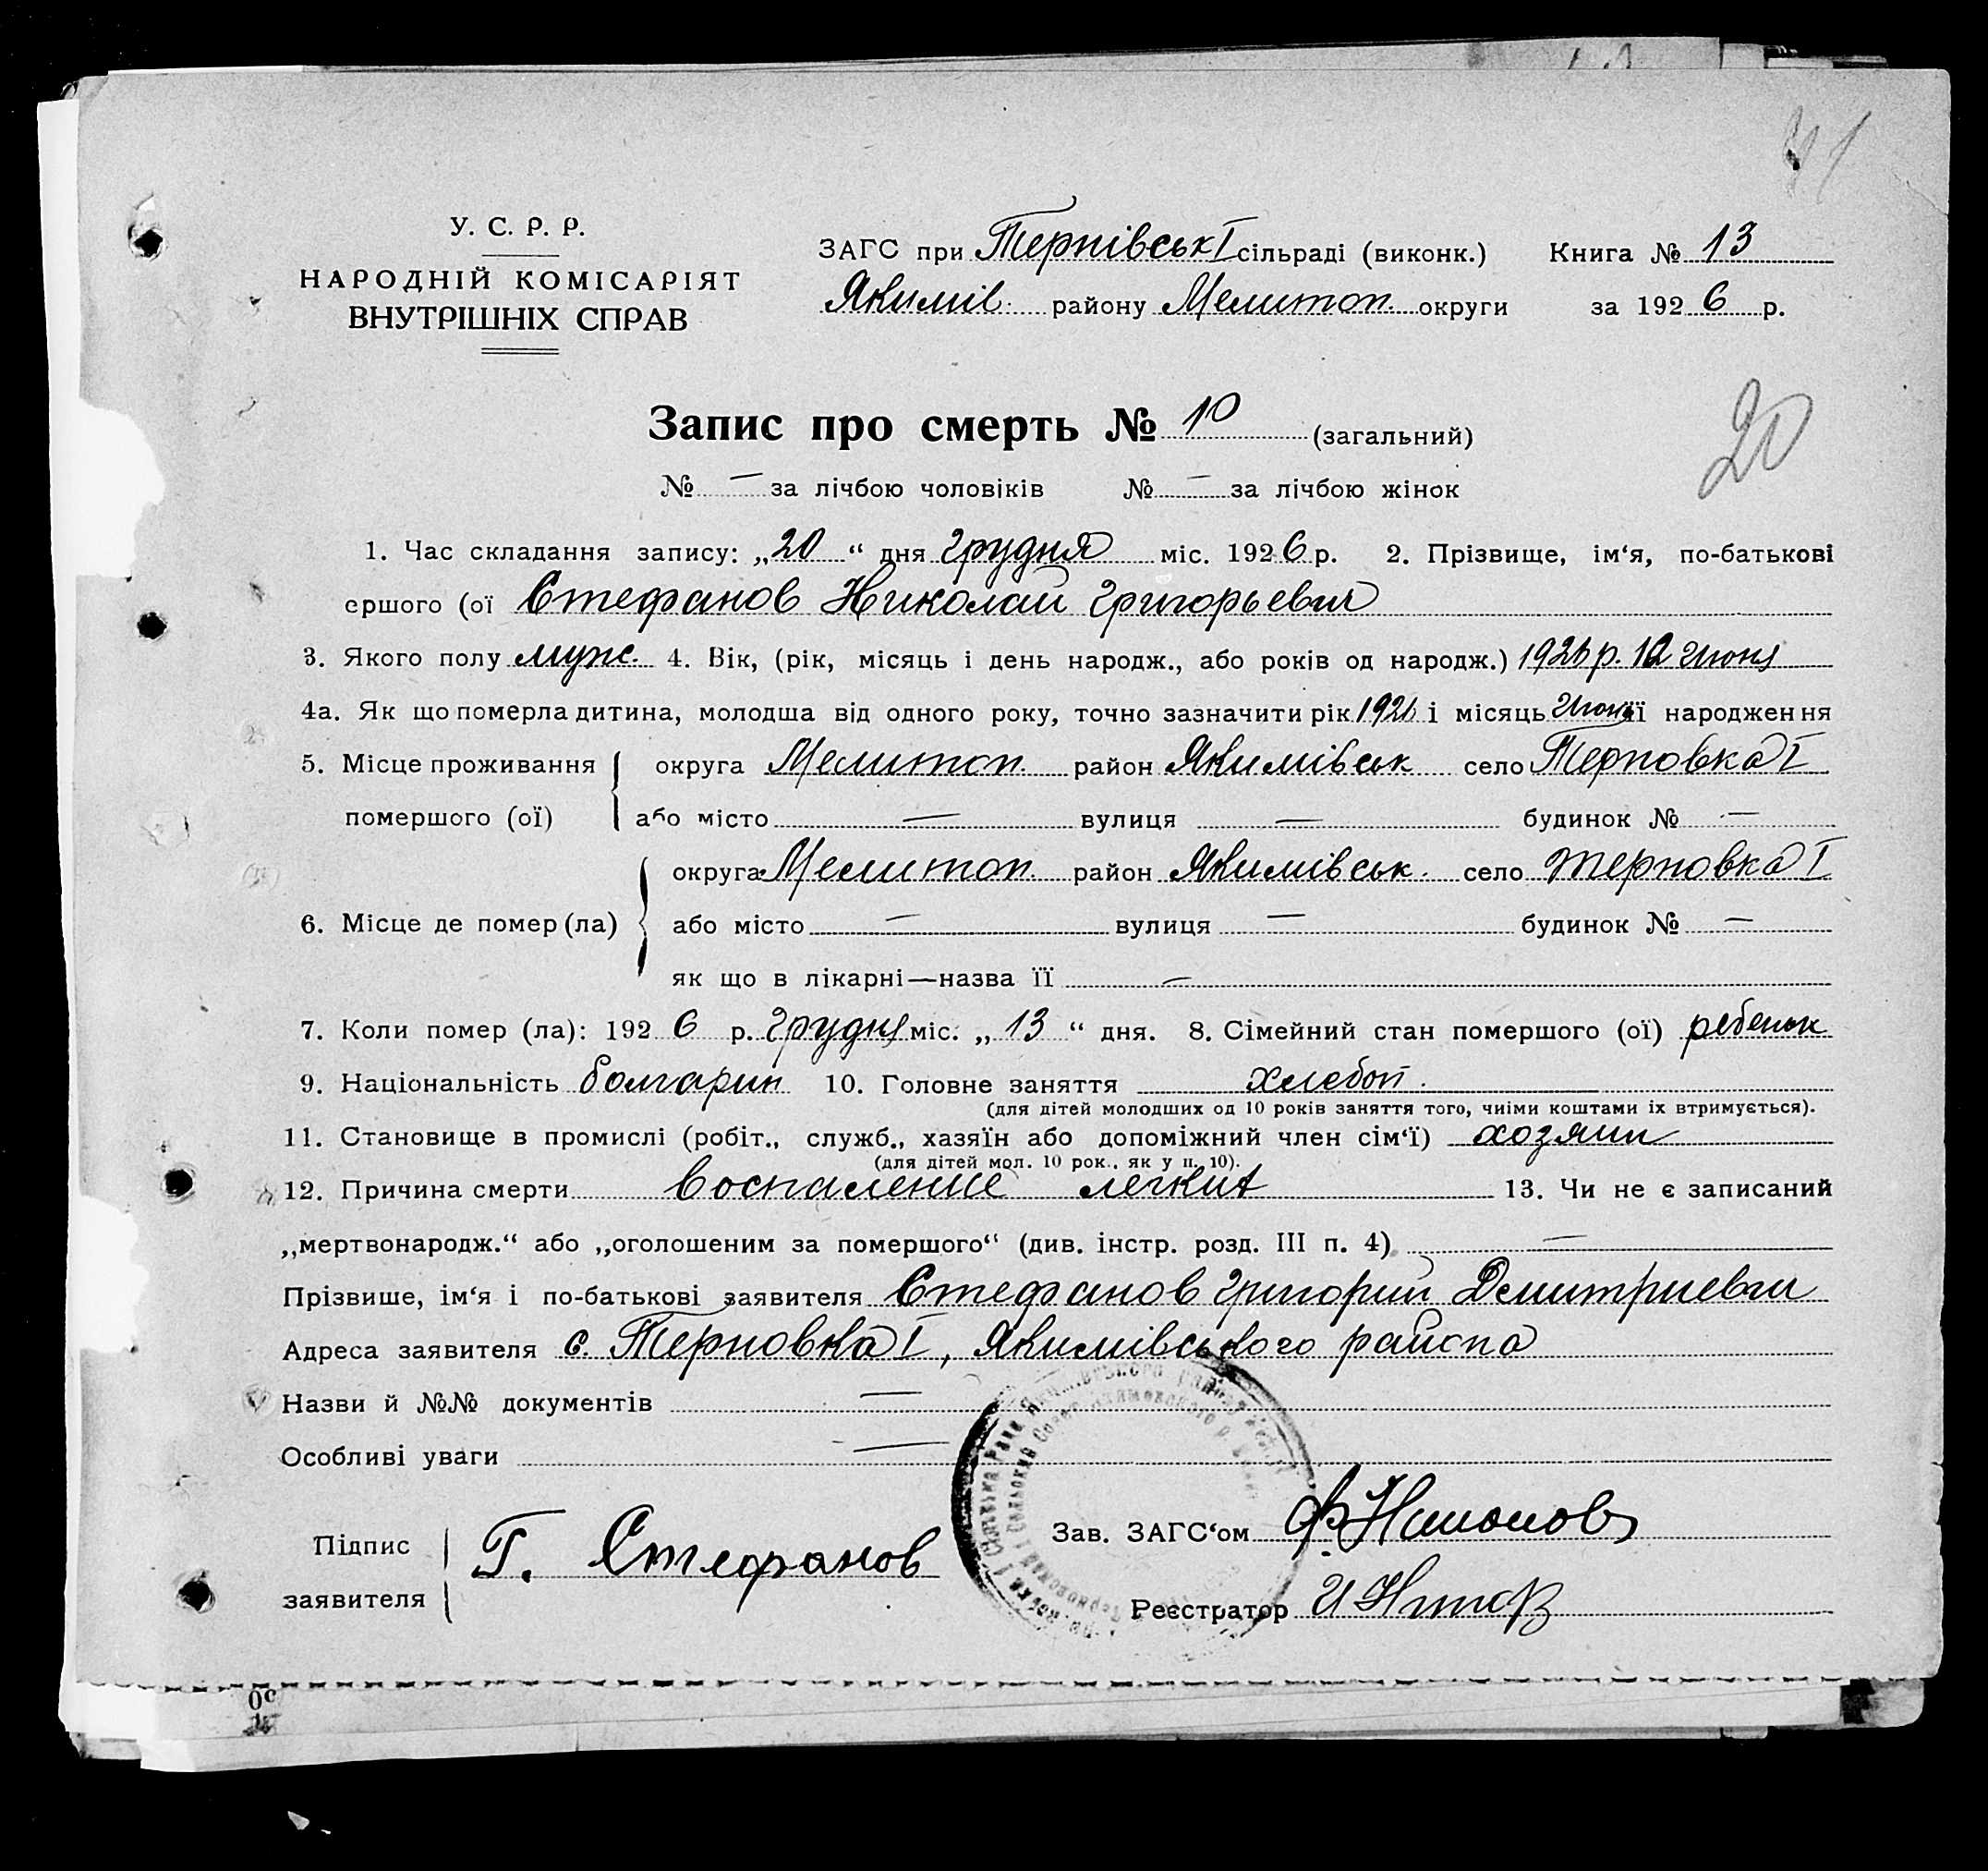 41
У. С. Р. Р.
НАРОДНІЙ КОМІСАРІЯТ
ВНУТРІШНІХ СПРАВ
ЗАГС при Терпівськ I сільраді (виконк.) Книга № 13
Якимів. району Мелитоп. округи за 1926 р.
Запис про смерть № 10 (загальний)
20
№ — за лічбою чоловіків № — за лічбою жінок
1. Час складання запису: „20“ дня грудня міс. 1926 р. 2. Прізвище, ім‘я, по-батькові
ершого (ої Стефанов Николай Григорьевич
3. Якого полу мужс. 4. Вік, (рік, місяць і день народж., або років од народж.) 1926 р. 12 Июня
4а. Як що померла дитина, молодша від одного року, точно зазначити рік 1926 і місяць Июня її народження
5. Місце проживання округа Мелитоп. район Якимівськ село Терновка I
помершого (ої) або місто — вулиця — будинок № —
округа Мелитоп. район Якимівськ. село Терновка I
6. Місце де помер (ла) або місто — вулиця — будинок № —
як що в лікарні—назва її —
7. Коли помер (ла): 1926 р. Грудня міс. „13“ дня. 8. Сімейний стан помершого (ої) ребенок
9. Національність болгарин 10. Головне заняття хлебоп.
(для дітей молодших од 10 років заняття того, чиїми коштами їх втримується).
11. Становище в промислі (робіт., служб., хазяїн або допоміжний член сім‘ї) хозяин
(для дітей мол. 10 рок., як у п. 10).
12. Причина смерти воспаление легких 13. Чи не є записаний
„мертвонародж.“ або „оголошеним за помершого“ (див. інстр. розд. III п. 4) —
Прізвише, ім‘я і по-батькові заявителя Стефанов Григорий Дмитриевич
Адреса заявителя с. Терновка I, Якимівського района
Назви й №№ документів —
Особливі уваги —
Підпис
заявителя
Г. Стефанов
Зав. ЗАГС‘ом
Реєстратор